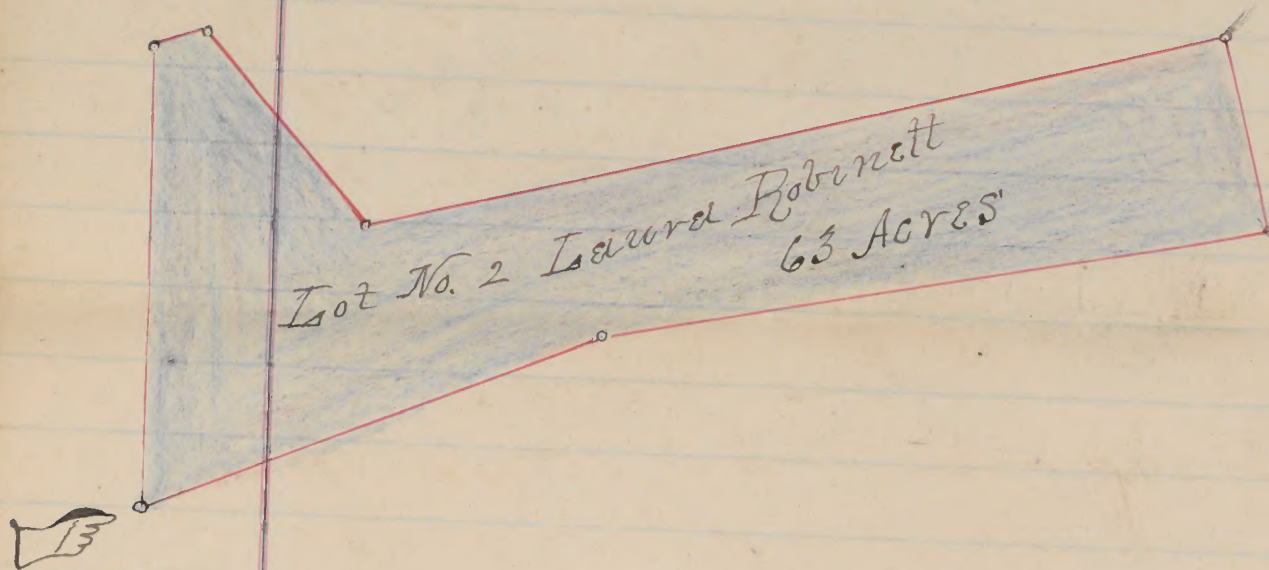 Lot No. 2 Laura Robinett
63 Acres